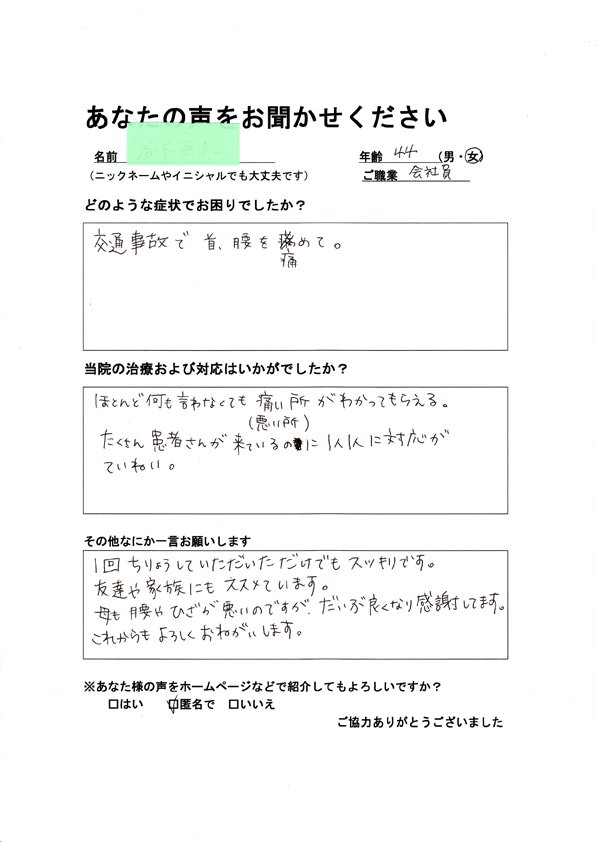 あなたの声をお聞かせください
名前
年齢 44 (男・女)
(ニックネームやイニシャルでも大丈夫です)
ご職業 会社員
どのような症状でお困りでしたか？
交通事故で 首、腰を 痛めて。
当院の治療および対応はいかがでしたか？
ほとんど何も言わなくても 痛い所 がわかってもらえる。
(悪い所)
たくさん 患者さんが 来ているのに 1人1人に対応が
ていねい。
その他なにか一言お願いします
1回 ちりょうしていただいた だけでも スッキリです。
友達や家族にも ススメています。
母も 腰や ひざが悪いのですが だいぶ良くなり感謝してます。
これからも よろしく おねがいします。
※あなた様の声をホームページなどで紹介してもよろしいですか？
□はい □匿名で □いいえ
ご協力ありがとうございました